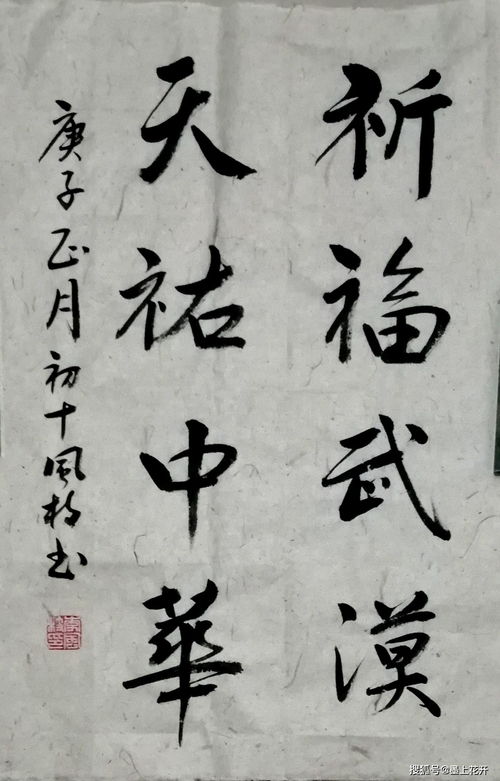 祈福武漢
天祐中華
庚子正月初十風枝书
搜狐号@墨上花开